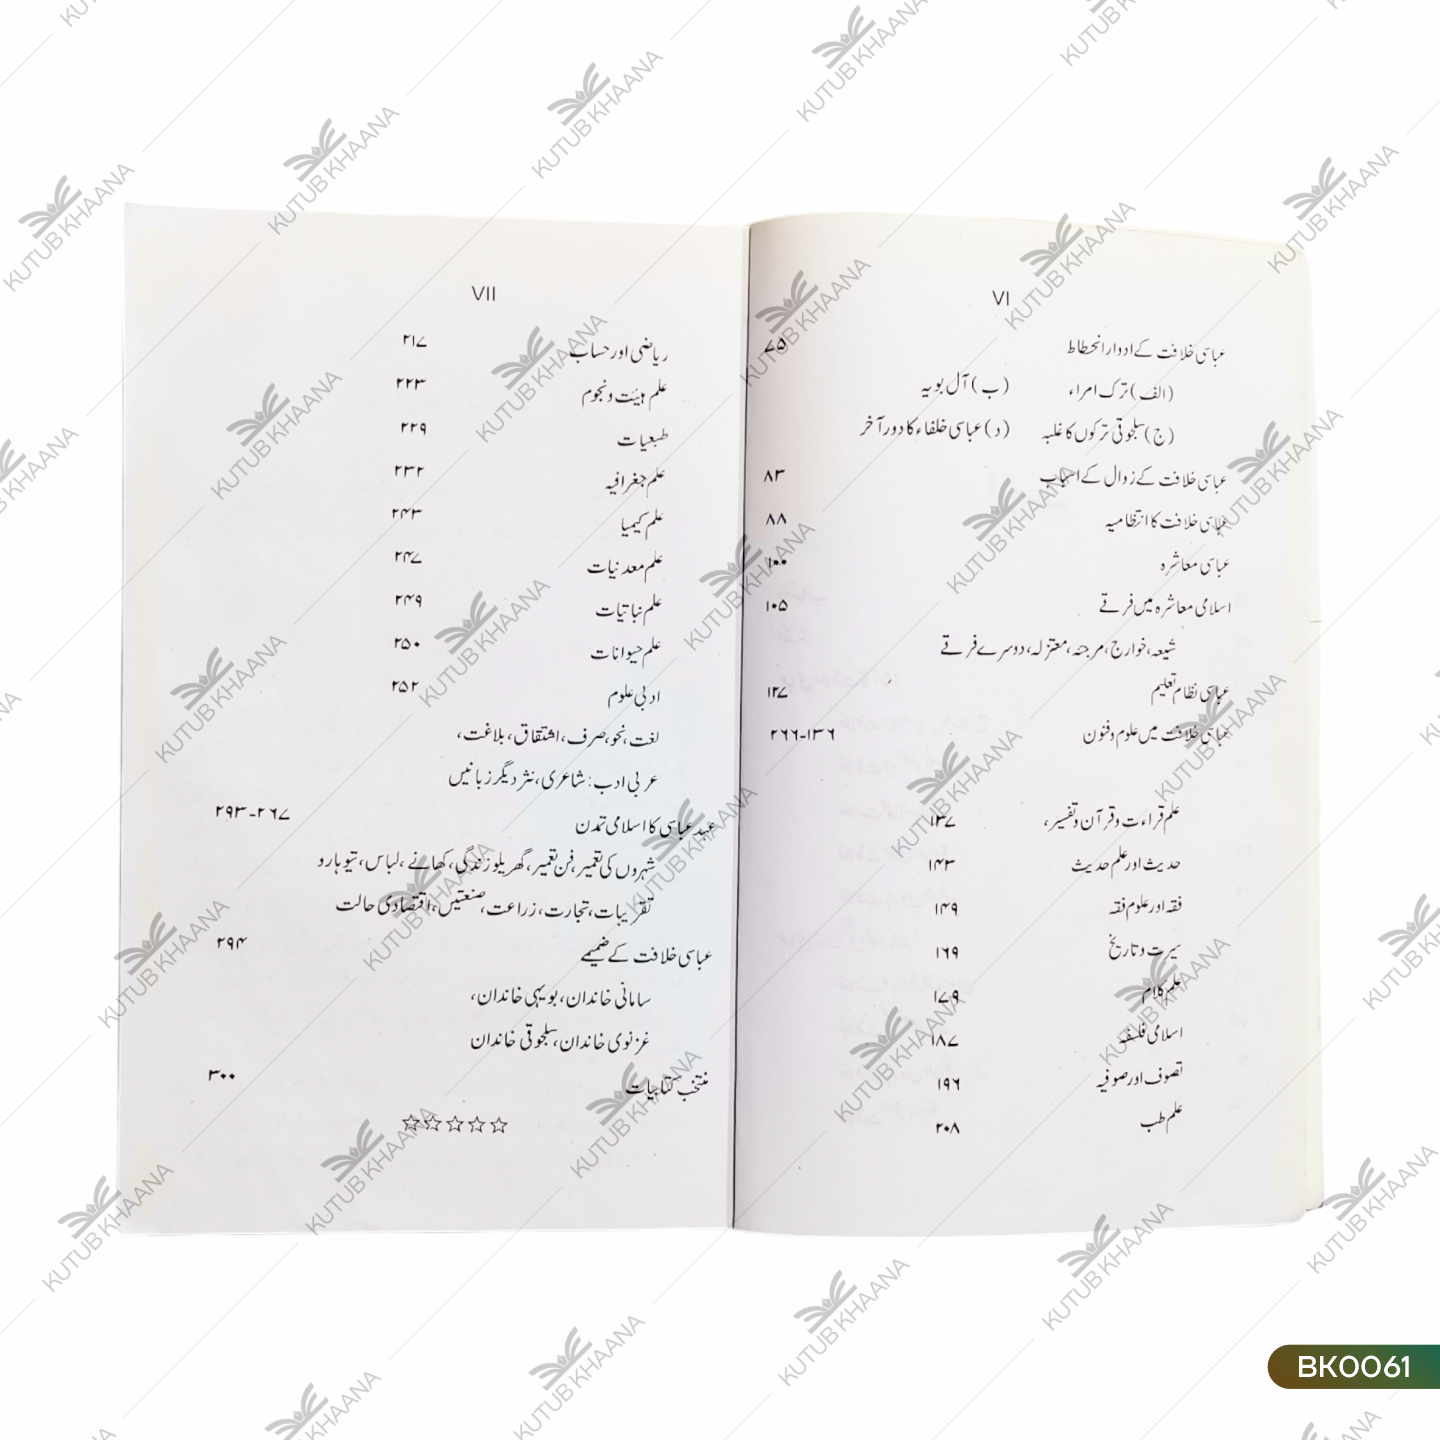 VI
عباسی خلافت کے ادوار انحطاط ۷۵
(الف) ترک امراء (ب) آل بویہ
(ج) سلجوقی ترکوں کا غلبہ (د) عباسی خلفاء کا دور آخر
عباسی خلافت کے زوال کے اسباب ۸۳
عباسی خلافت کا انتظامیہ ۸۸
عباسی معاشرہ ۱۰۰
اسلامی معاشرہ میں فرقے ۱۰۵
شیعہ، خوارج، مرجئہ، معتزلہ، دوسرے فرقے
عباسی نظام تعلیم ۱۲۷
عباسی خلافت میں علوم و فنون ۱۳۶-۲۶۶
علم قراءت و قرآن و تفسیر، ۱۳۷
حدیث اور علم حدیث ۱۴۳
فقہ اور علوم فقہ ۱۴۹
سیرت و تاریخ ۱۶۹
علم کلام ۱۷۹
اسلامی فلسفہ ۱۸۷
تصوف اور صوفیہ ۱۹۶
علم طب ۲۰۸
VII
ریاضی اور حساب ۲۱۷
علم ہیئت و نجوم ۲۲۳
طبعیات ۲۲۹
علم جغرافیہ ۲۳۲
علم کیمیا ۲۴۳
علم معدنیات ۲۴۷
علم نباتیات ۲۴۹
علم حیوانات ۲۵۰
ادبی علوم ۲۵۲
لغت، نحو، صرف، اشتقاق، بلاغت،
عربی ادب: شاعری، نثر دیگر زبانیں
عہد عباسی کا اسلامی تمدن ۲۶۷-۲۹۳
شہروں کی تعمیر، فن تعمیر، گھریلو زندگی، کھانے، لباس، تیوہار و
تقریبات، تجارت، زراعت، صنعتیں، اقتصادی حالت
عباسی خلافت کے ضمیمے ۲۹۴
سامانی خاندان، بویہی خاندان،
غزنوی خاندان، سلجوقی خاندان
منتخب کتابیات ۳۰۰
☆☆☆☆☆
BK0061
KUTUB KHAANA